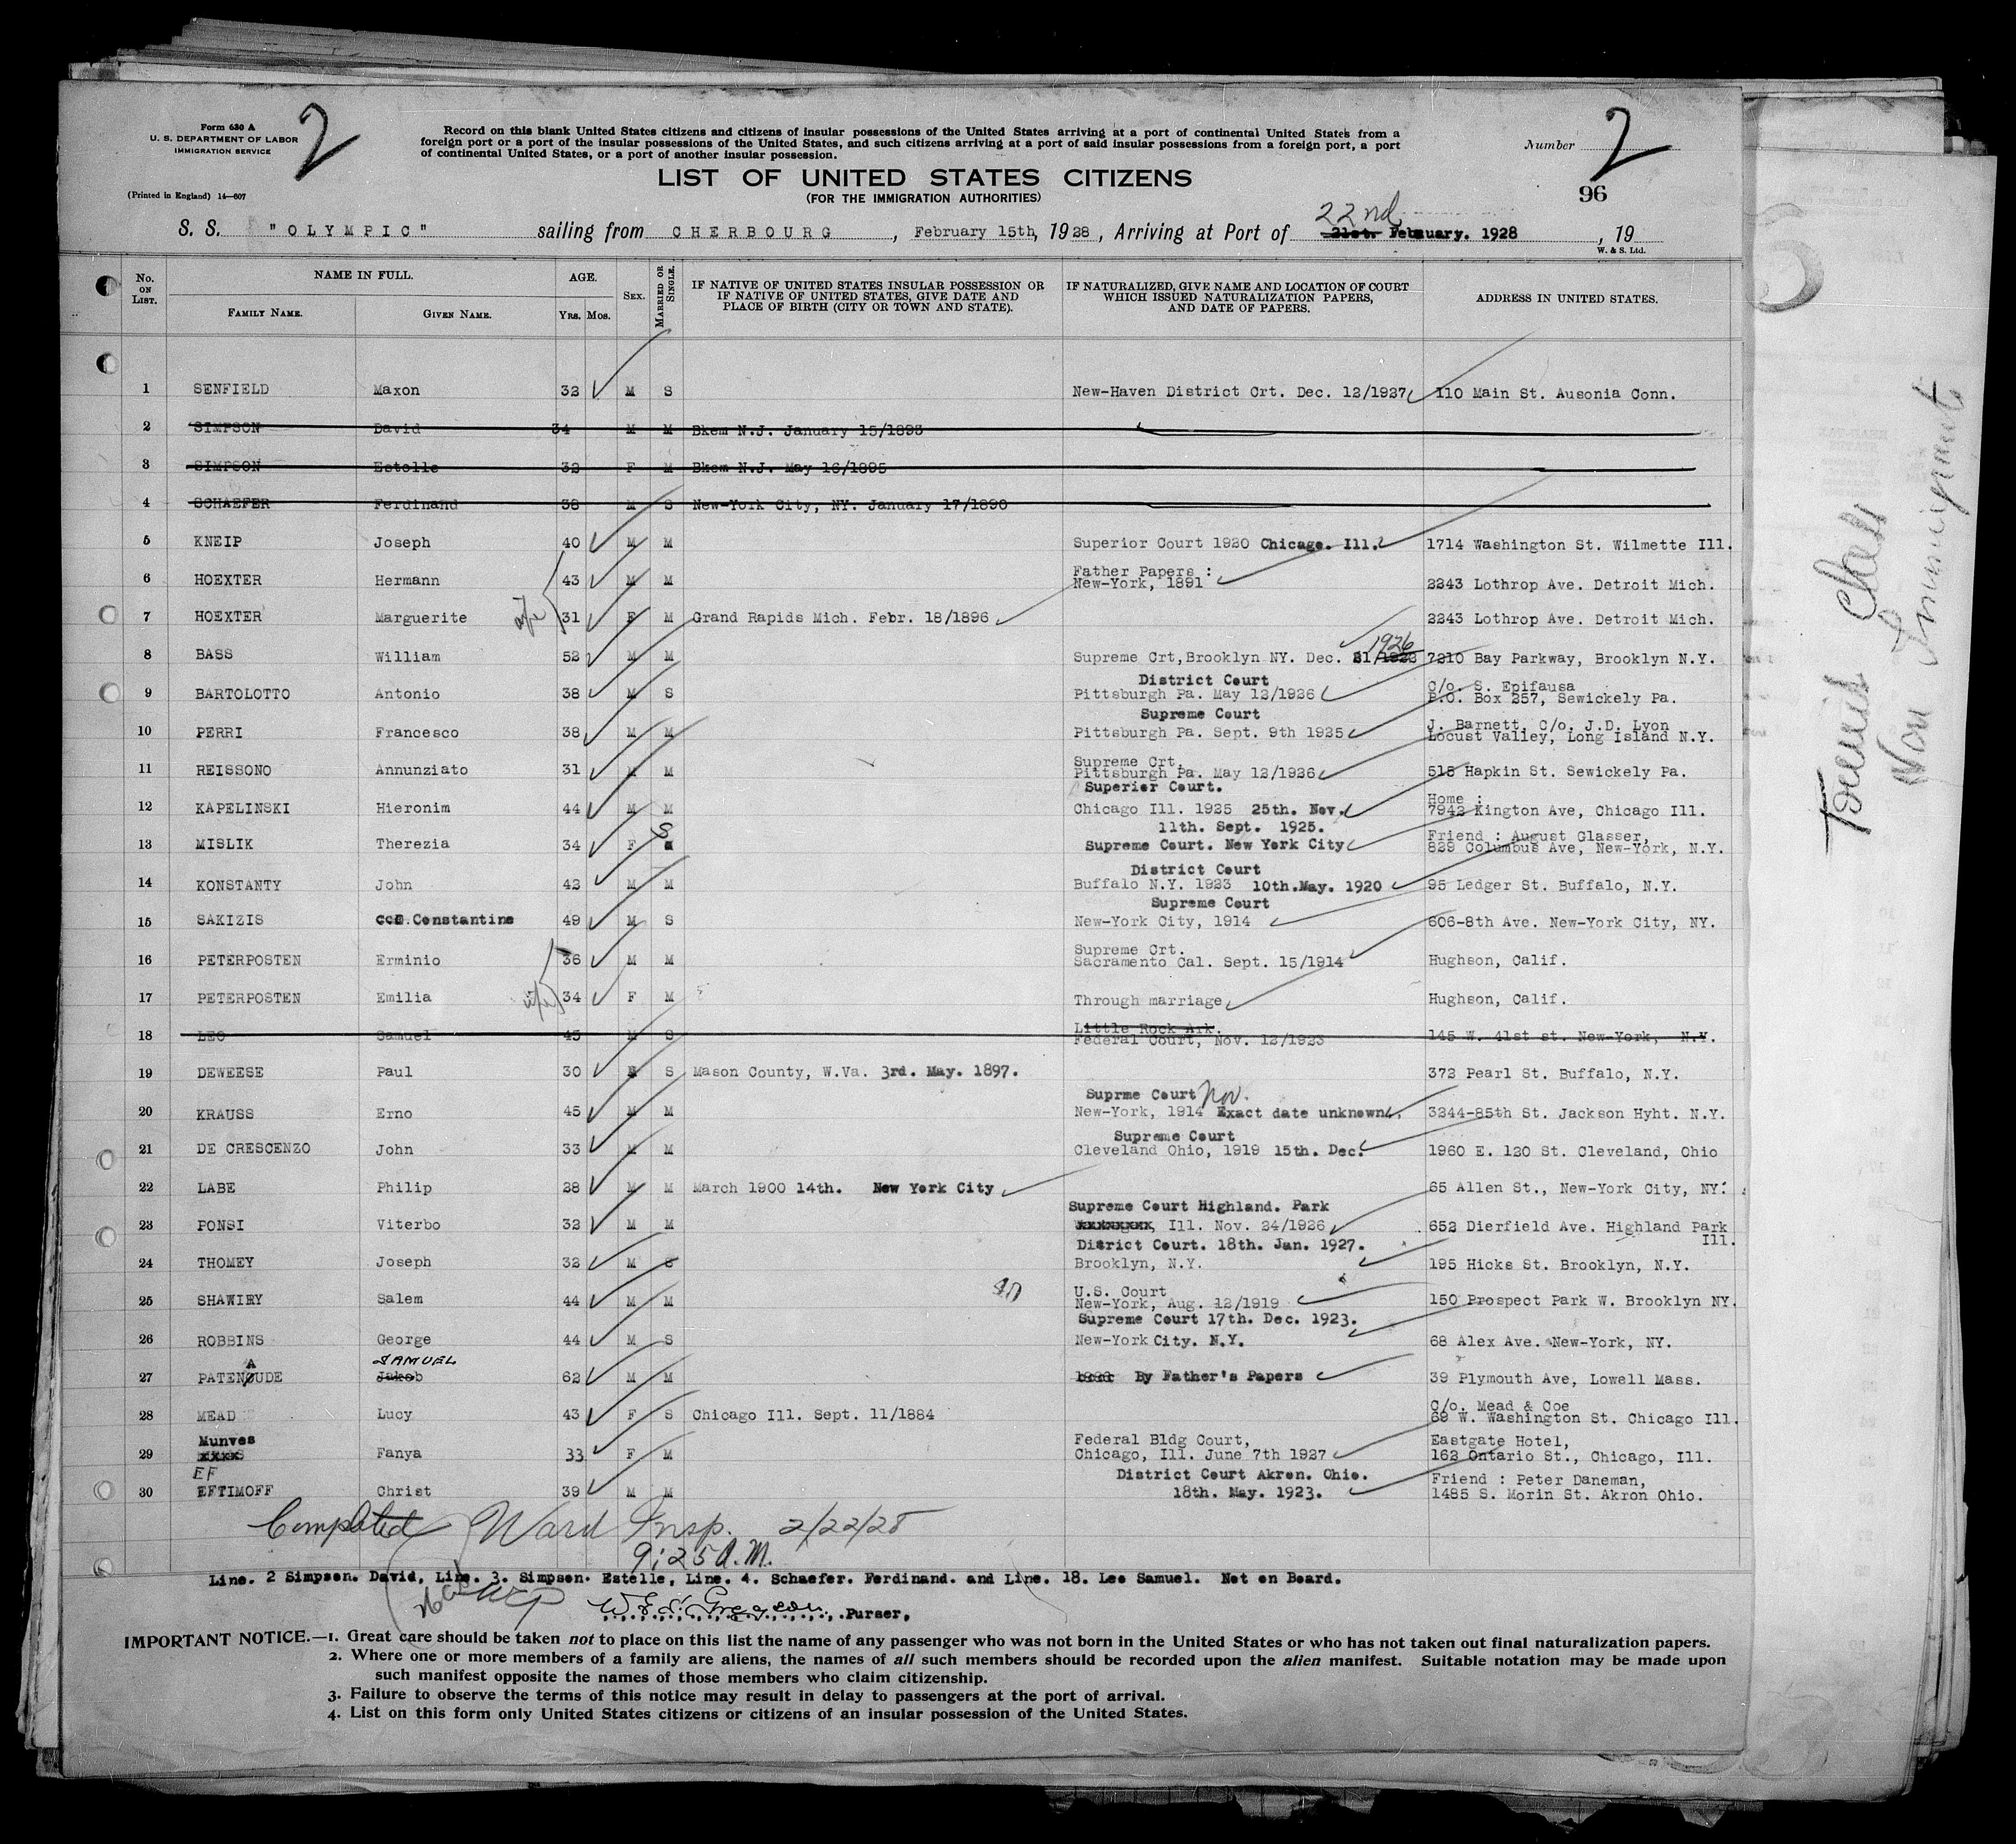 Form 630 A
U. S. DEPARTMENT OF LABOR
IMMIGRATION SERVICE
(Printed in England) 14—607
2
Record on this blank United States citizens and citizens of insular possessions of the United States arriving at a port of continental United States from a
foreign port or a port of the insular possessions of the United States, and such citizens arriving at a port of said insular possessions from a foreign port, a port
of continental United States, or a port of another insular possession.
Number 2
96
LIST OF UNITED STATES CITIZENS
(FOR THE IMMIGRATION AUTHORITIES)
22nd
S. S. "OLYMPIC" sailing from CHERBOURG, February 15th, 1928, Arriving at Port of 21st. February. 1928, 19
W. & S. Ltd.
No. ON LIST. NAME IN FULL. FAMILY NAME. GIVEN NAME. AGE. YRS. MOS. SEX. MARRIED OR SINGLE. IF NATIVE OF UNITED STATES INSULAR POSSESSION OR IF NATIVE OF UNITED STATES, GIVE DATE AND PLACE OF BIRTH (CITY OR TOWN AND STATE). IF NATURALIZED, GIVE NAME AND LOCATION OF COURT WHICH ISSUED NATURALIZATION PAPERS, AND DATE OF PAPERS. ADDRESS IN UNITED STATES.
1 SENFIELD Maxon 32 M S New-Haven District Crt. Dec. 12/1927 110 Main St. Ausonia Conn.
2 SIMPSON David 34 M M Bkem N.J. January 15/1893
3 SIMPSON Estelle 32 F M Bkem N.J. May 16/1895
4 SCHAEFER Ferdinand 38 M S New-York City, NY. January 17/1890
5 KNEIP Joseph 40 M M Superior Court 1920 Chicago. Ill. 1714 Washington St. Wilmette Ill.
Father Papers :
6 HOEXTER Hermann 43 M M New-York, 1891 2243 Lothrop Ave. Detroit Mich.
7 HOEXTER Marguerite 31 F M Grand Rapids Mich. Febr. 18/1896 2243 Lothrop Ave. Detroit Mich.
1926
8 BASS William 52 M M Supreme Crt, Brooklyn NY. Dec. 21/1922 7210 Bay Parkway, Brooklyn N.Y.
District Court C/o. S. Epifausa
9 BARTOLOTTO Antonio 38 M S Pittsburgh Pa. May 12/1926 P.O. Box 257, Sewickely Pa.
Supreme Court J. Barnett, C/o. J.D. Lyon
10 PERRI Francesco 38 M M Pittsburgh Pa. Sept. 9th 1925 Locust Valley, Long Island N.Y.
Supreme Crt.
11 REISSONO Annunziato 31 M M Pittsburgh Pa. May 12/1926 515 Hapkin St. Sewickely Pa.
Superior Court. Home :
12 KAPELINSKI Hieronim 44 M M Chicago Ill. 1925 25th. Nov. 7942 Kington Ave, Chicago Ill.
S 11th. Sept. 1925. Friend : August Glasser,
13 MISLIK Therezia 34 F Supreme Court. New York City 829 Columbus Ave, New-York, N.Y.
District Court
14 KONSTANTY John 42 M M Buffalo N.Y. 1923 10th. May. 1920 95 Ledger St. Buffalo, N.Y.
Supreme Court
15 SAKIZIS Constantine 49 M S New-York City, 1914 606-8th Ave. New-York City, NY.
Supreme Crt.
16 PETERPOSTEN Erminio 36 M M Sacramento Cal. Sept. 15/1914 Hughson, Calif.
17 PETERPOSTEN Emilia wife 34 F M Through marriage Hughson, Calif.
Little Rock Ark.
18 LEO Samuel 45 M S Federal Court, Nov. 12/1923 145 W. 41st st. New-York, N.Y.
19 DEWEESE Paul 30 M S Mason County, W.Va. 3rd. May. 1897. 372 Pearl St. Buffalo, N.Y.
Suprme Court Nov.
20 KRAUSS Erno 45 M M New-York, 1914 Exact date unknown. 3244-85th St. Jackson Hyht. N.Y.
Supreme Court
21 DE CRESCENZO John 33 M M Cleveland Ohio, 1919 15th. Dec. 1960 E. 120 St. Cleveland, Ohio
22 LABE Philip 28 M M March 1900 14th. New York City 65 Allen St., New-York City, NY.
Supreme Court Highland. Park
23 PONSI Viterbo 32 M M Ill. Nov. 24/1926 652 Dierfield Ave. Highland Park Ill.
District Court. 18th. Jan. 1927.
24 THOMEY Joseph 32 M S Brooklyn, N.Y. 195 Hicks St. Brooklyn, N.Y.
U.S. Court
25 SHAWIRY Salem 44 M M New-York, Aug. 12/1919 150 Prospect Park W. Brooklyn NY.
Supreme Court 17th. Dec. 1923.
26 ROBBINS George 44 M S New-York City. N.Y. 68 Alex Ave. New-York, NY.
A SAMUEL
27 PATENOUDE Jakob 62 M M By Father's Papers 39 Plymouth Ave, Lowell Mass.
C/o. Mead & Coe
28 MEAD Lucy 43 F S Chicago Ill. Sept. 11/1884 69 W. Washington St. Chicago Ill.
Munves Federal Bldg Court, Eastgate Hotel,
29 Fanya 33 F M Chicago, Ill. June 7th 1927 162 Ontario St., Chicago, Ill.
EF District Court Akron. Ohio. Friend : Peter Daneman,
30 EFTIMOFF Christ 39 M M 18th. May. 1923. 1485 S. Morin St. Akron Ohio.
Completed Ward Insp. 2/22/28
9:25 A.M.
Line. 2 Simpson. David, Line. 3. Simpson. Estelle, Line. 4. Schaefer. Ferdinand. and Line. 18. Leo Samuel. Not on Board.
Purser,
IMPORTANT NOTICE.—1. Great care should be taken not to place on this list the name of any passenger who was not born in the United States or who has not taken out final naturalization papers.
2. Where one or more members of a family are aliens, the names of all such members should be recorded upon the alien manifest. Suitable notation may be made upon
such manifest opposite the names of those members who claim citizenship.
3. Failure to observe the terms of this notice may result in delay to passengers at the port of arrival.
4. List on this form only United States citizens or citizens of an insular possession of the United States.
Tourist Class
Non Immigrant